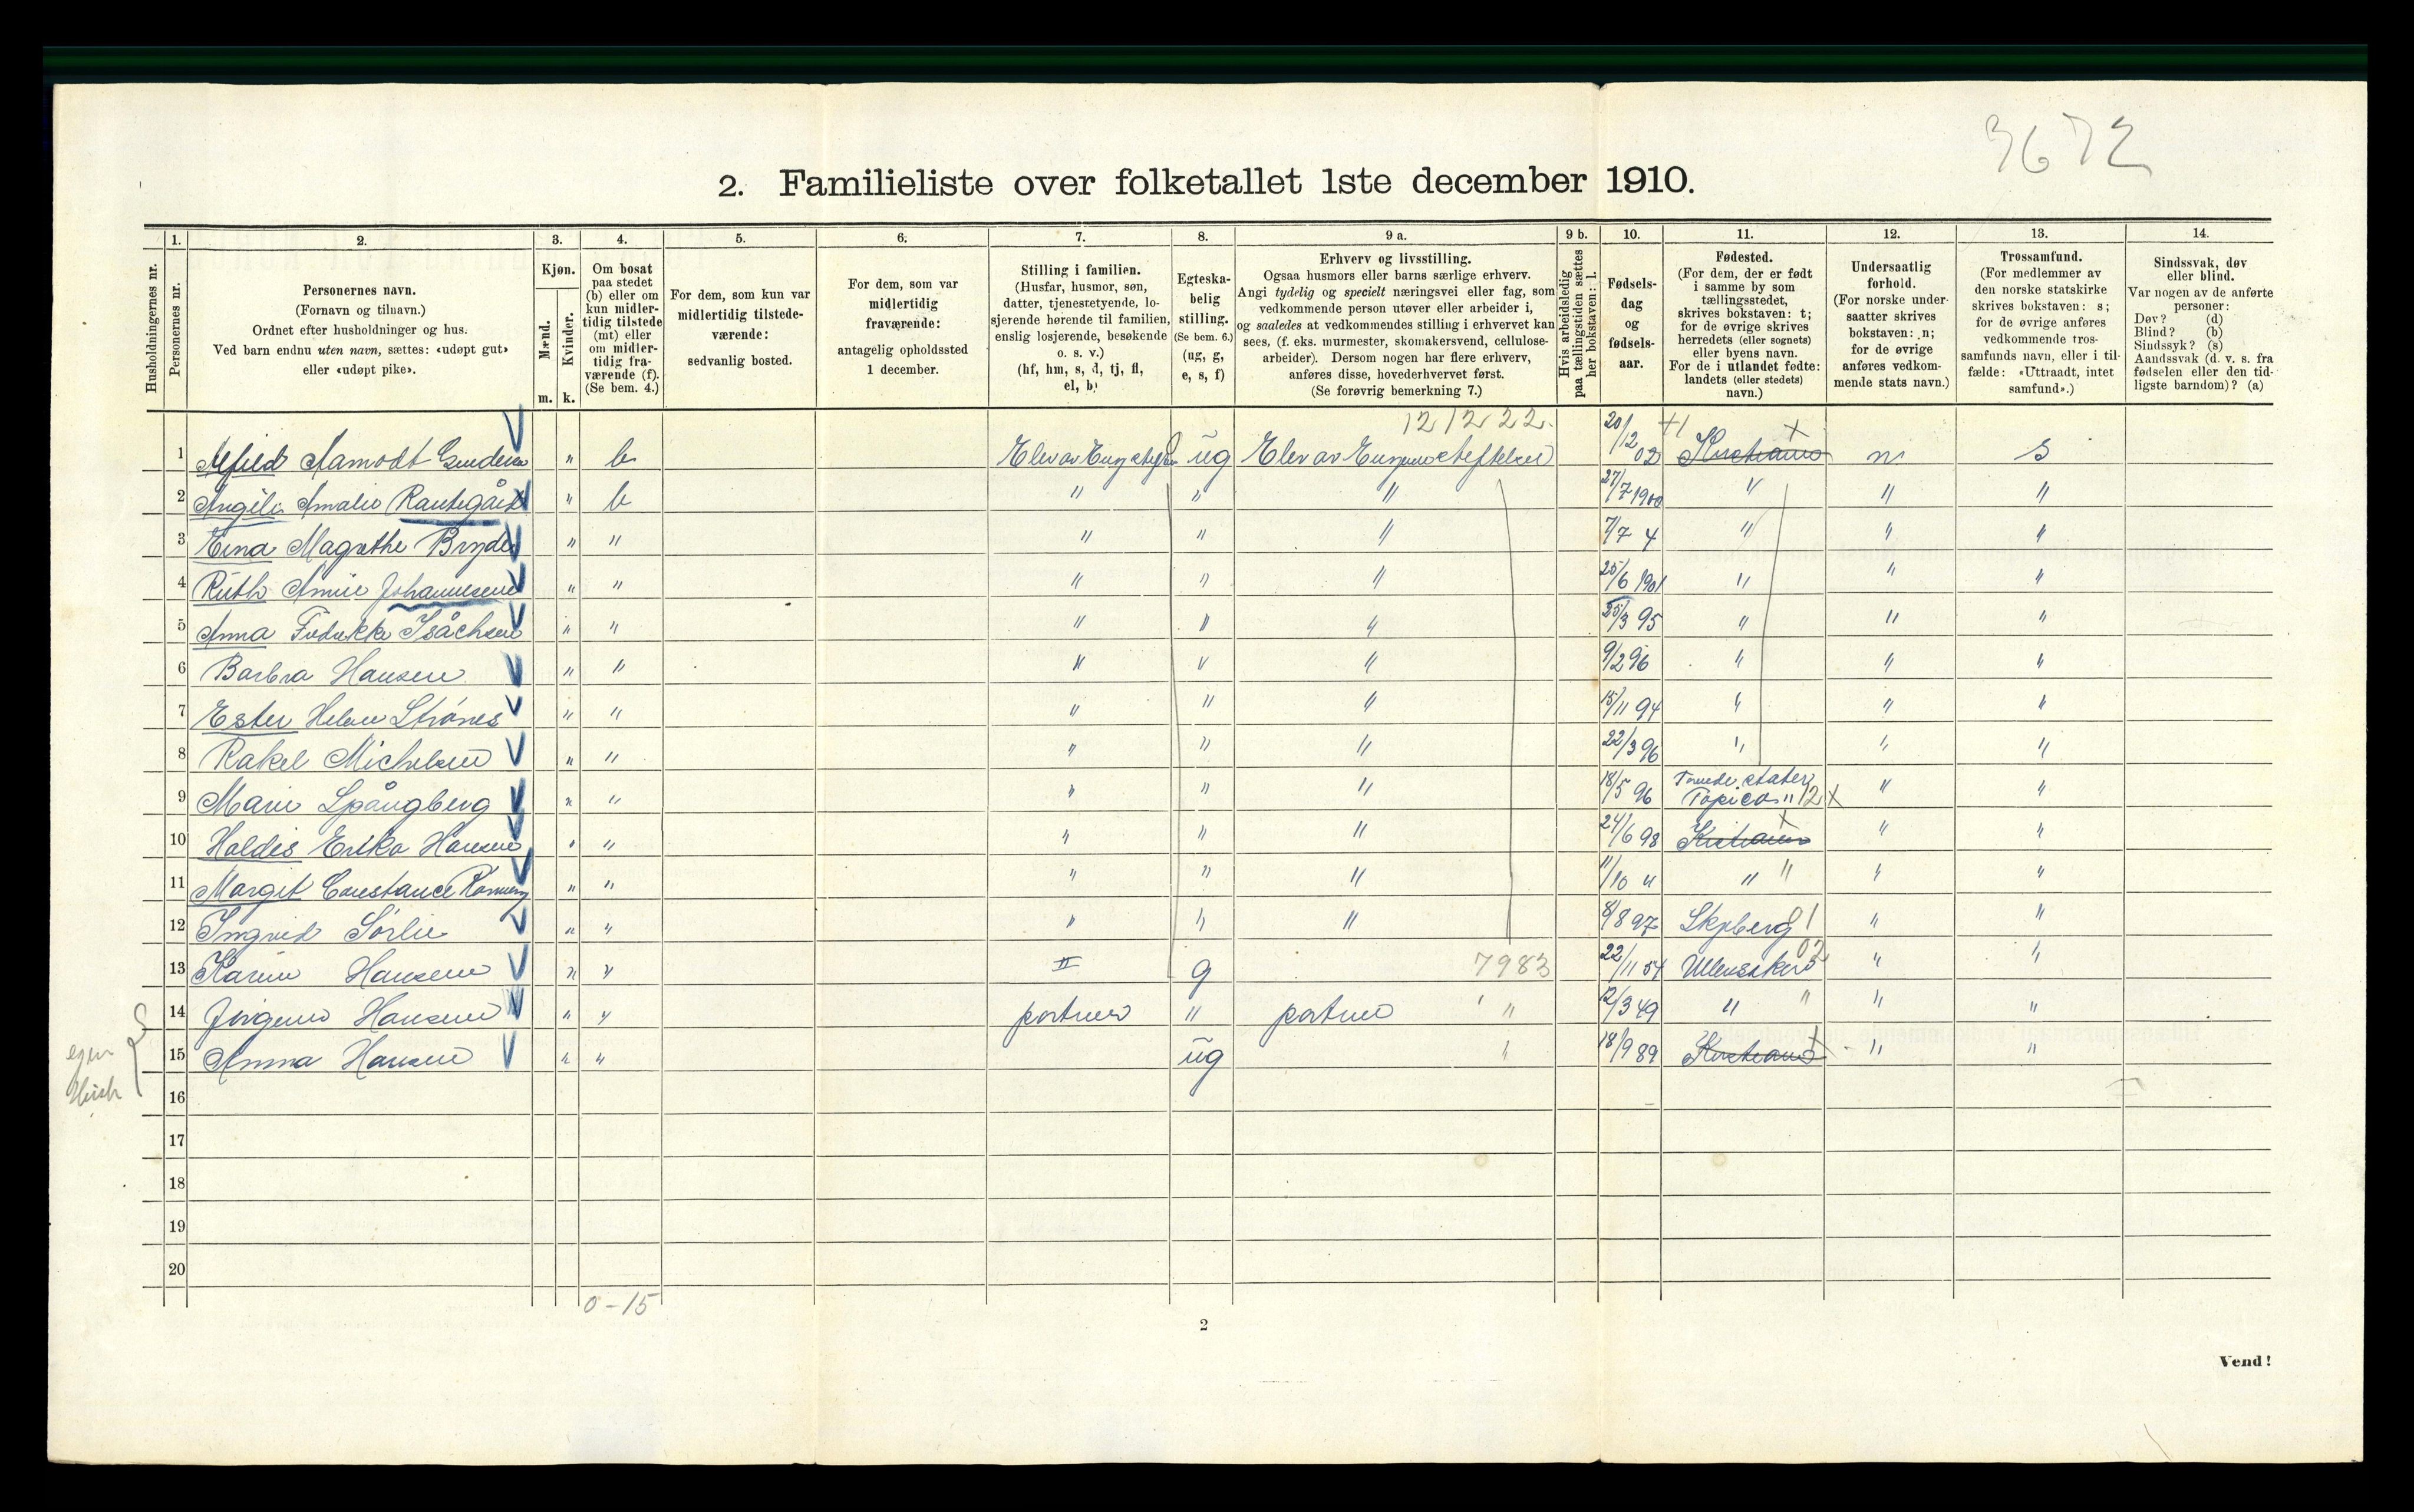 3672
2. Familieliste over folketallet 1ste december 1910.
Husholdningernes nr.
1. Personernes nr.
2. Personernes navn.
(Fornavn og tilnavn.)
Ordnet efter husholdninger og hus.
Ved barn endnu uten navn, sættes: «udøpt gut»
eller «udøpt pike».
3. Kjøn.
Mænd. m.
Kvinder. k.
4. Om bosat
paa stedet
(b) eller om
kun midler-
tidig tilstede
(mt) eller
om midler-
tidig fra-
værende (f).
(Se bem. 4.)
5. For dem, som kun var
midlertidig tilstede-
værende:
sedvanlig bosted.
6. For dem, som var
midlertidig
fraværende:
antagelig opholdssted
1 december.
7. Stilling i familien.
(Husfar, husmor, søn,
datter, tjenestetyende, lo-
sjerende hørende til familien,
enslig losjerende, besøkende
o. s. v.)
(hf, hm, s, d, tj, fl,
el, b)
8. Egteska-
belig
stilling.
(Se bem. 6.)
(ug, g,
e, s, f)
9 a. Erhverv og livsstilling.
Ogsaa husmors eller barns særlige erhverv.
Angi tydelig og specielt næringsvei eller fag, som
vedkommende person utøver eller arbeider i,
og saaledes at vedkommendes stilling i erhvervet kan
sees, (f. eks. murmester, skomakersvend, cellulose-
arbeider). Dersom nogen har flere erhverv,
anføres disse, hovederhvervet først.
(Se forøvrig bemerkning 7.)
9 b. Hvis arbeidsledig
paa tællingstiden sættes
her bokstaven: l.
10. Fødsels-
dag
og
fødsels-
aar.
11. Fødested.
(For dem, der er født
i samme by som
tællingsstedet,
skrives bokstaven: t;
for de øvrige skrives
herredets (eller sognets)
eller byens navn.
For de i utlandet fødte:
landets (eller stedets)
navn.)
12. Undersaatlig
forhold.
(For norske under-
saatter skrives
bokstaven: n;
for de øvrige
anføres vedkom-
mende stats navn.)
13. Trossamfund.
(For medlemmer av
den norske statskirke
skrives bokstaven: s;
for de øvrige anføres
vedkommende tros-
samfunds navn, eller i til-
fælde: «Uttraadt, intet
samfund».)
14. Sindssvak, døv
eller blind.
Var nogen av de anførte
personer:
Døv? (d)
Blind? (b)
Sindssyk? (s)
Aandssvak (d. v. s. fra
fødselen eller den tid-
ligste barndom)? (a)
12 12 22.
1 Aamodt " b Elev av ug Elev av 20/12 02 n s
2 Amalie " b " " " 27/7 1900 " " "
3 Erna Magrethe Bryde " " " " " 7/7 4 " " "
4 Ruth Johannesen " " " " " 25/6 1901 " " "
5 Anna Isåchsen " " " " " 25/3 95 " " "
6 Barbra Hansen " " " " " 9/2 96 " " "
7 Ester Helene Strønes " " " " " 15/11 94 " " "
8 Rakel Michelsen " " " " " 22/3 96 " " "
9 Marie Spångberg " " " " " 18/5 96 Forenede stater 12 x " "
10 Haldis Erika Hansen " " " " " 24/6 98 " "
11 Margit Constance " " " " " 11/10 " " " "
12 Ingrid Sørlie " " " " " 8/8 97 01 " "
13 Karen Hansen " " " g 7983 22/11 54 Ullensaker 02 " "
14 Hansen " " portner " portner " 12/3 49 " " " "
15 Anna Hansen " " ug " 18/9 89 " "
egen
Hush
16
17
18
19
20
0-15
2
Vend!